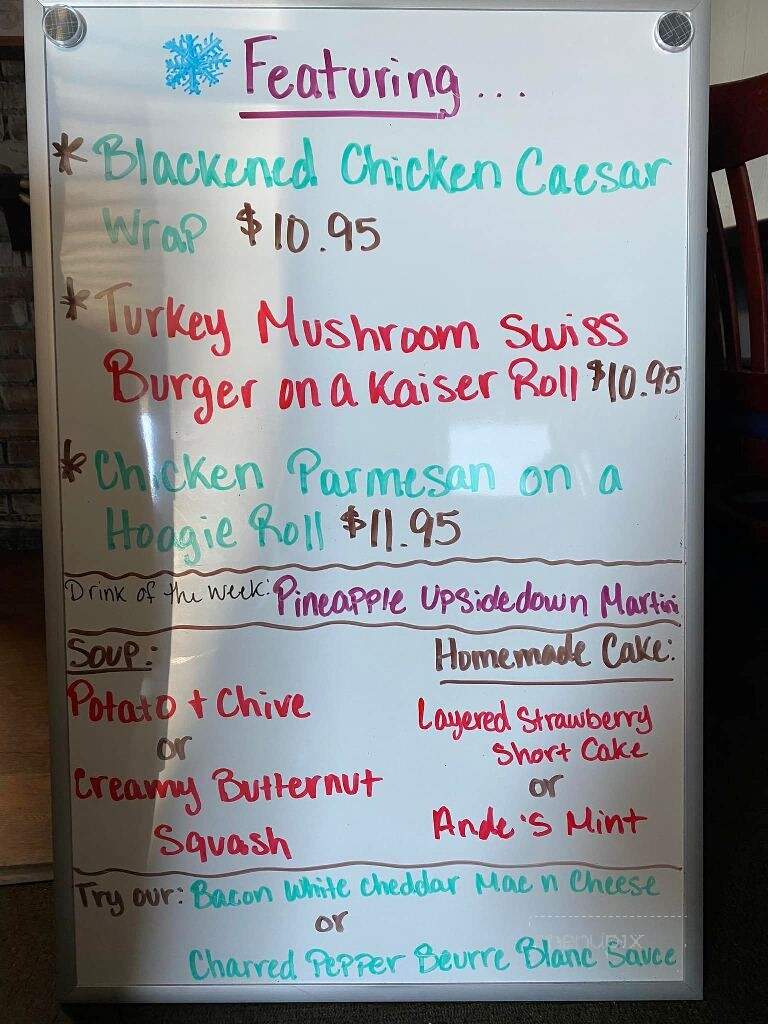 Featuring...
* Blackened Chicken Caesar
Wrap $10.95
* Turkey Mushroom Swiss
Burger on a Kaiser Roll $10.95
* Chicken Parmesan on a
Hoagie Roll $11.95
Drink of the Week: Pineapple Upsidedown Martini
Soup:
Potato + Chive
or
Creamy Butternut
Squash
Homemade Cake:
Layered Strawberry
Short Cake
or
Ande's Mint
Try our: Bacon White Cheddar Mac n Cheese
or
Charred Pepper Beurre Blanc Sauce
menupix